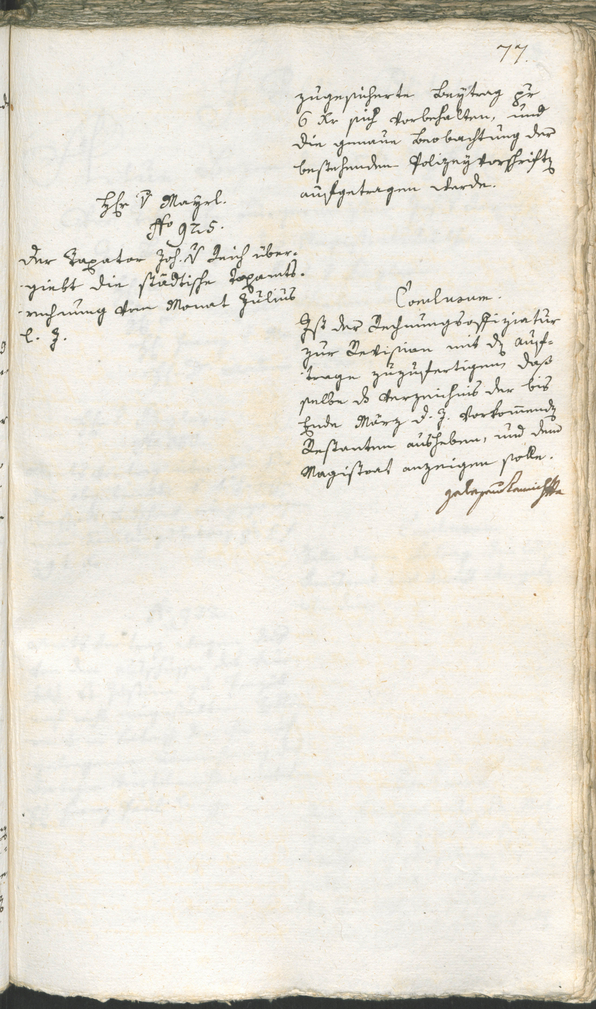 77.
zugesicherte Beÿtrag pr
6 Kr sich vorbehalten, und
die genaue Beobachtung der
bestehenden Polizeÿvorschriften
aufgetragen werde.
Hr v Mayrl.
No 925.
Der Taxator Joh. v Reich über-
giebt die städtische Taxamts-
rechnung vom Monat Julius
l. J.
Conclusum.
Ist der Rechnungsoffiziatur
zur Revision mit dem Auf-
trage zuzufertigen, daß
selbe das Verzeichnis der bis
Ende März d. J. vorkommenden
Restanten ausheben, und dem
Magistrat anzeigen solle.
gelesen